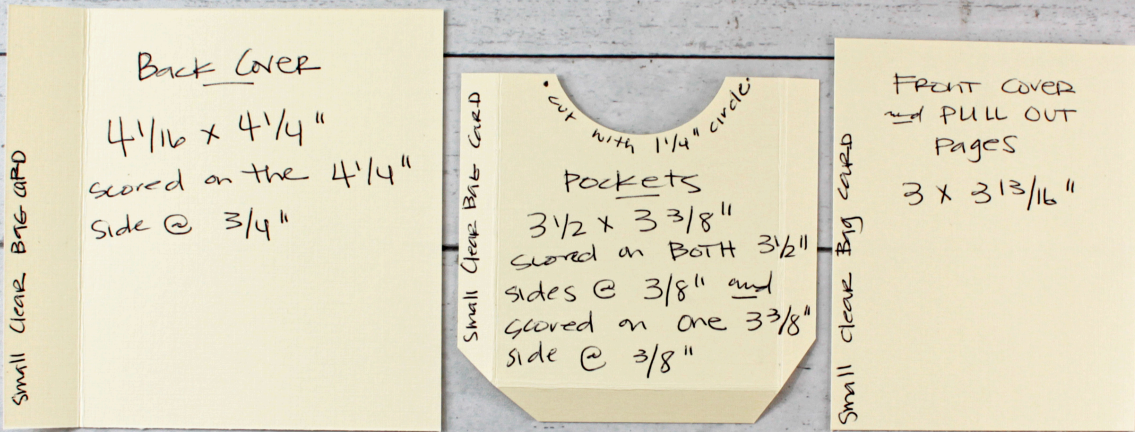 Small Clear Bag Card
Back Cover
4 1/16 x 4 1/4"
scored on the 4 1/4"
side @ 3/4"
Small Clear Bag Card
• cut with 1 1/4" circle •
Pockets
3 1/2 x 3 3/8"
scored on BOTH 3 1/2"
sides @ 3/8" and
scored on one 3 3/8"
side @ 3/8"
Small Clear Bag Card
FRONT COVER
and PULL OUT
pages
3 x 3 13/16"